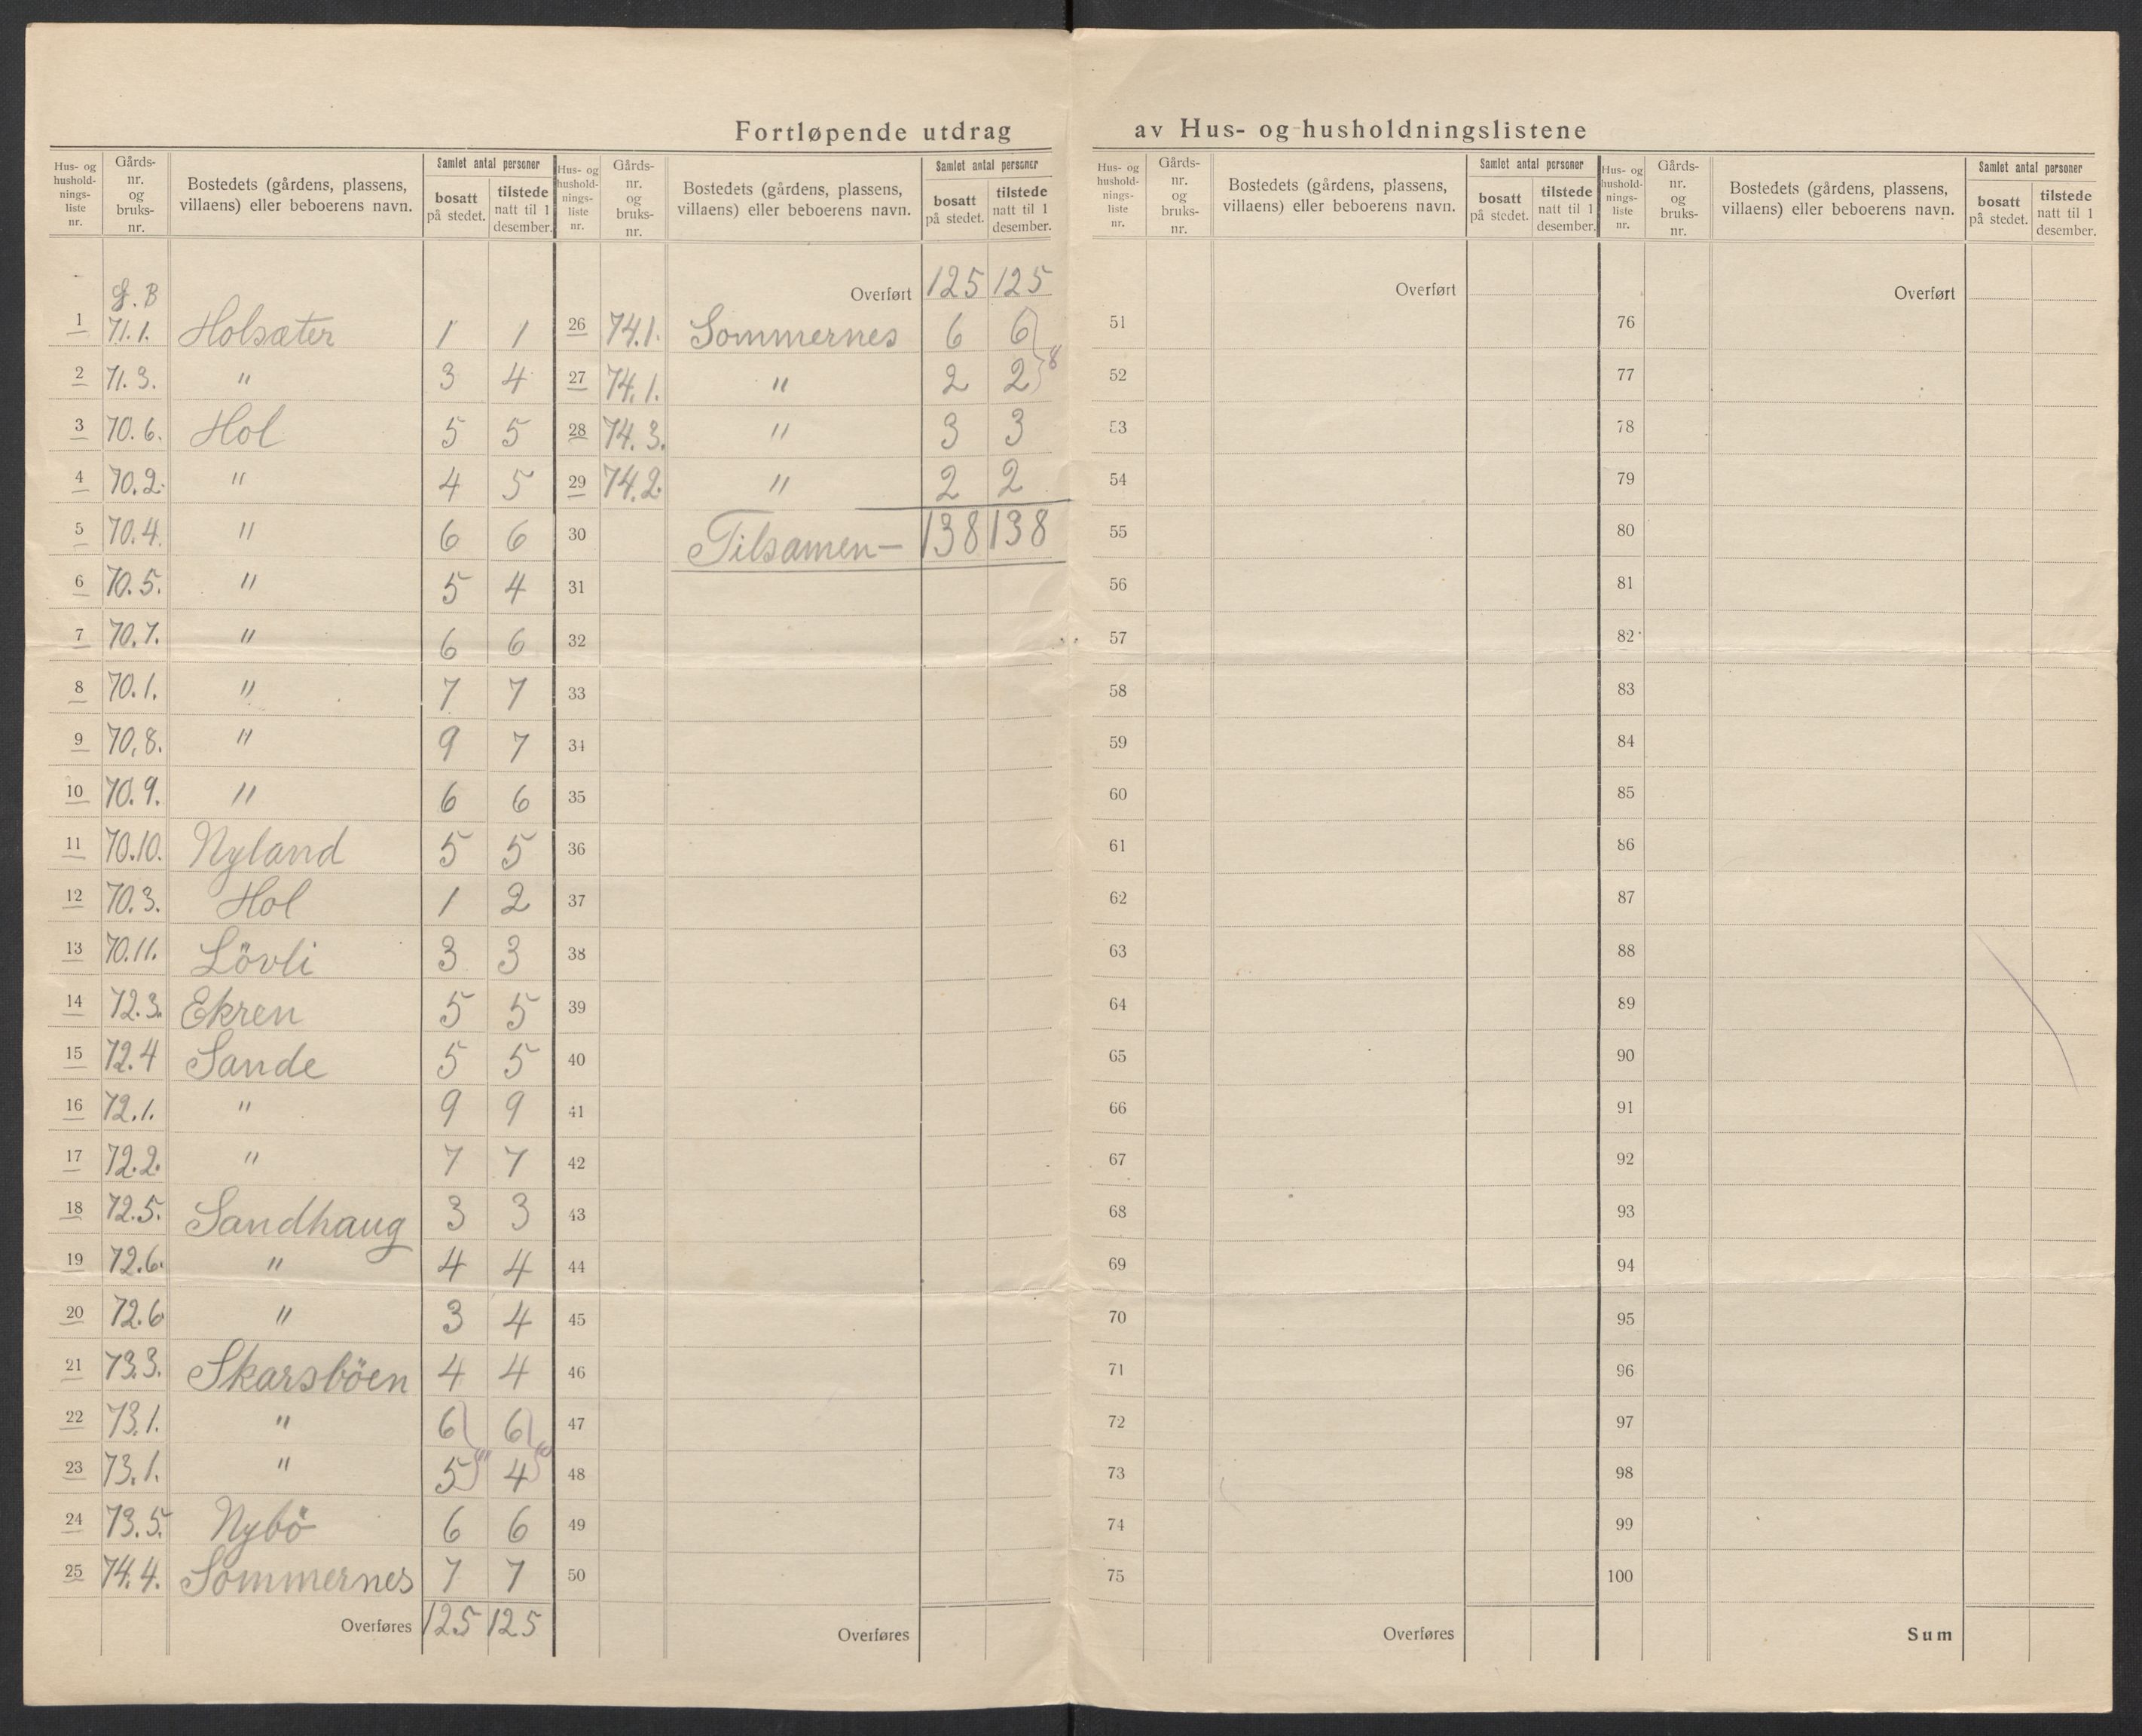 Fortløpende utdrag av Hus- og husholdningslistene
Hus- og husholdnings-liste nr. Gårds-nr. og bruks-nr. Bostedets (gårdens, plassens, villaens) eller beboerens navn. Samlet antal personer bosatt på stedet. tilstede natt til 1 desember.
G. B
1 71.1. Holsæter 1 1
2 71.3. " 3 4
3 70.6. Hol 5 5
4 70.2. " 4 5
5 70.4. " 6 6
6 70.5. " 5 4
7 70.7. " 6 6
8 70.1. " 7 7
9 70.8. " 9 7
10 70.9. " 6 6
11 70.10. Nyland 5 5
12 70.3. Hol 1 2
13 70.11. Lövli 3 3
14 72.3. Ekren 5 5
15 72.4 Sande 5 5
16 72.1. " 9 9
17 72.2. " 7 7
18 72.5. Sandhaug 3 3
19 72.6. " 4 4
20 72.6 " 3 4
21 73.3. Skarsböen 4 4
22 73.1. " 6 6
23 73.1. " 5 4
24 73.5. Nybö 6 6
25 74.4. Sommernes 7 7
Overføres 125 125
Hus- og husholdnings-liste nr. Gårds-nr. og bruks-nr. Bostedets (gårdens, plassens, villaens) eller beboerens navn. Samlet antal personer bosatt på stedet. tilstede natt til 1 desember.
Overført 125 125
26 74.1. Sommernes 6 6
27 74.1. " 2 2 8
28 74.3. " 3 3
29 74.2. " 2 2
30 Tilsamen — 138 138
31
32
33
34
35
36
37
38
39
40
41
42
43
44
45
46
47
48
49
50
Overføres
Hus- og husholdnings-liste nr. Gårds-nr. og bruks-nr. Bostedets (gårdens, plassens, villaens) eller beboerens navn. Samlet antal personer bosatt på stedet. tilstede natt til 1 desember.
Overført
51
52
53
54
55
56
57
58
59
60
61
62
63
64
65
66
67
68
69
70
71
72
73
74
75
Overføres
Hus- og husholdnings-liste nr. Gårds-nr. og bruks-nr. Bostedets (gårdens, plassens, villaens) eller beboerens navn. Samlet antal personer bosatt på stedet. tilstede natt til 1 desember.
Overført
76
77
78
79
80
81
82
83
84
85
86
87
88
89
90
91
92
93
94
95
96
97
98
99
100
Sum